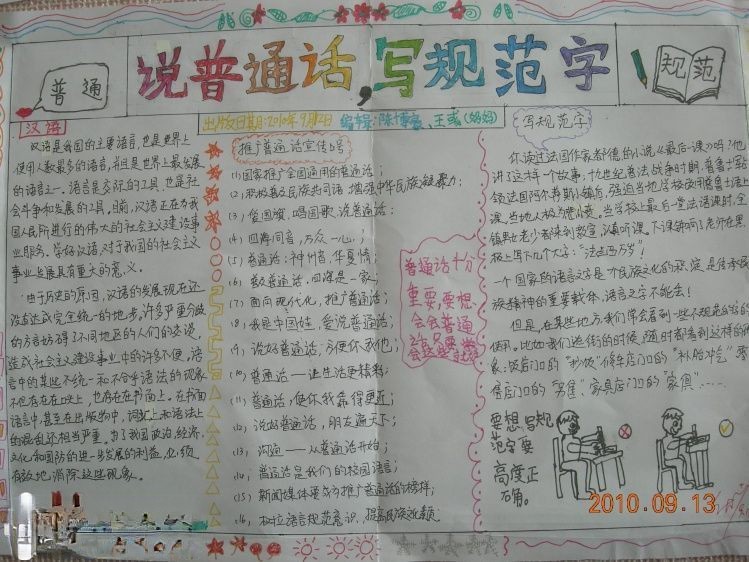 普通
说普通话,写规范字
规范
出版日期:2010年9月12日 编辑:陈博
汉语
汉语是我国的主要语言,也是世界上
使用人数最多的语言,并且是世界上最发展
的语言之一。语言是交际的工具,也是社
会斗争和发展的工具。目前,汉语正在为我
国人民所进行的伟大的社会主义建设事
业服务。学好汉语,对于我国的社会主义
事业发展具有重大的意义。
由于历史的原因,汉语的发展现在还
没有达成完全统一的地步,许多严重分歧
的方言妨碍了不同地区的人们的交谈,
造成社会主义建设事业中的许多不便,语
言中的某些不统一和不合乎语法的现象
不但存在在口头上,也存在在书面上。在书面
语言中,甚至在出版物中,词汇上和语法上
的混乱还相当严重。为了我国政治、经济、
文化和国防的进一步发展的利益,必须
有效地消除这些现象。
推广普通话宣传口号
(1)国家推广全国通用的普通话;
(2)积极普及民族共同语 增强中华民族凝聚力;
(3)爱国旗,唱国歌,说普通话;
(4)四海同音,万众一心;
(5)普通话:神州音,华夏情;
(6)普及普通话,四海是一家;
(7)面向现代化,推广普通话;
(8)我是中国娃,爱说普通话;
(9)说好普通话,方便你我他;
(10)普通话——让生活更精彩;
(11)普通话,使你我靠得更近;
(12)说好普通话,朋友遍天下;
(13)沟通——从普通话开始;
(14)普通话是我们的校园语言;
(15)新闻媒体要成为推广普通话的榜样;
(16)树立语言规范意识,提高民族
普通话十分
重要,要想
会普通
写规范字
你读过法国作家都德的小说《最后一课》吗?他
讲了这样一个故事,十九世纪普法战争时期,普鲁士占
领法国阿尔萨斯小镇后,强迫当地学校改用普鲁士语上
课,当地人极为愤慨。当学校上最后一堂法语课时,全
镇男女老少都来到教室,认真听课。下课钟响了,老师在黑
板上写下几个大字:“法兰西万岁!”
一个国家的语言文字是一个民族文化的积淀,是传承民
族精神的重要载体,语言文字不能丢!
但是,在某些地方,我们常会看到一些不规范的字的
使用。比如我们逛街的时候,随时都看到这样的现
象:饭店门口的“抄饭”修车店门口的“补胎冲气”
店门口的家具店门口的“家俱”……
要想写规
范字要
高度正
确。
2010.09.13